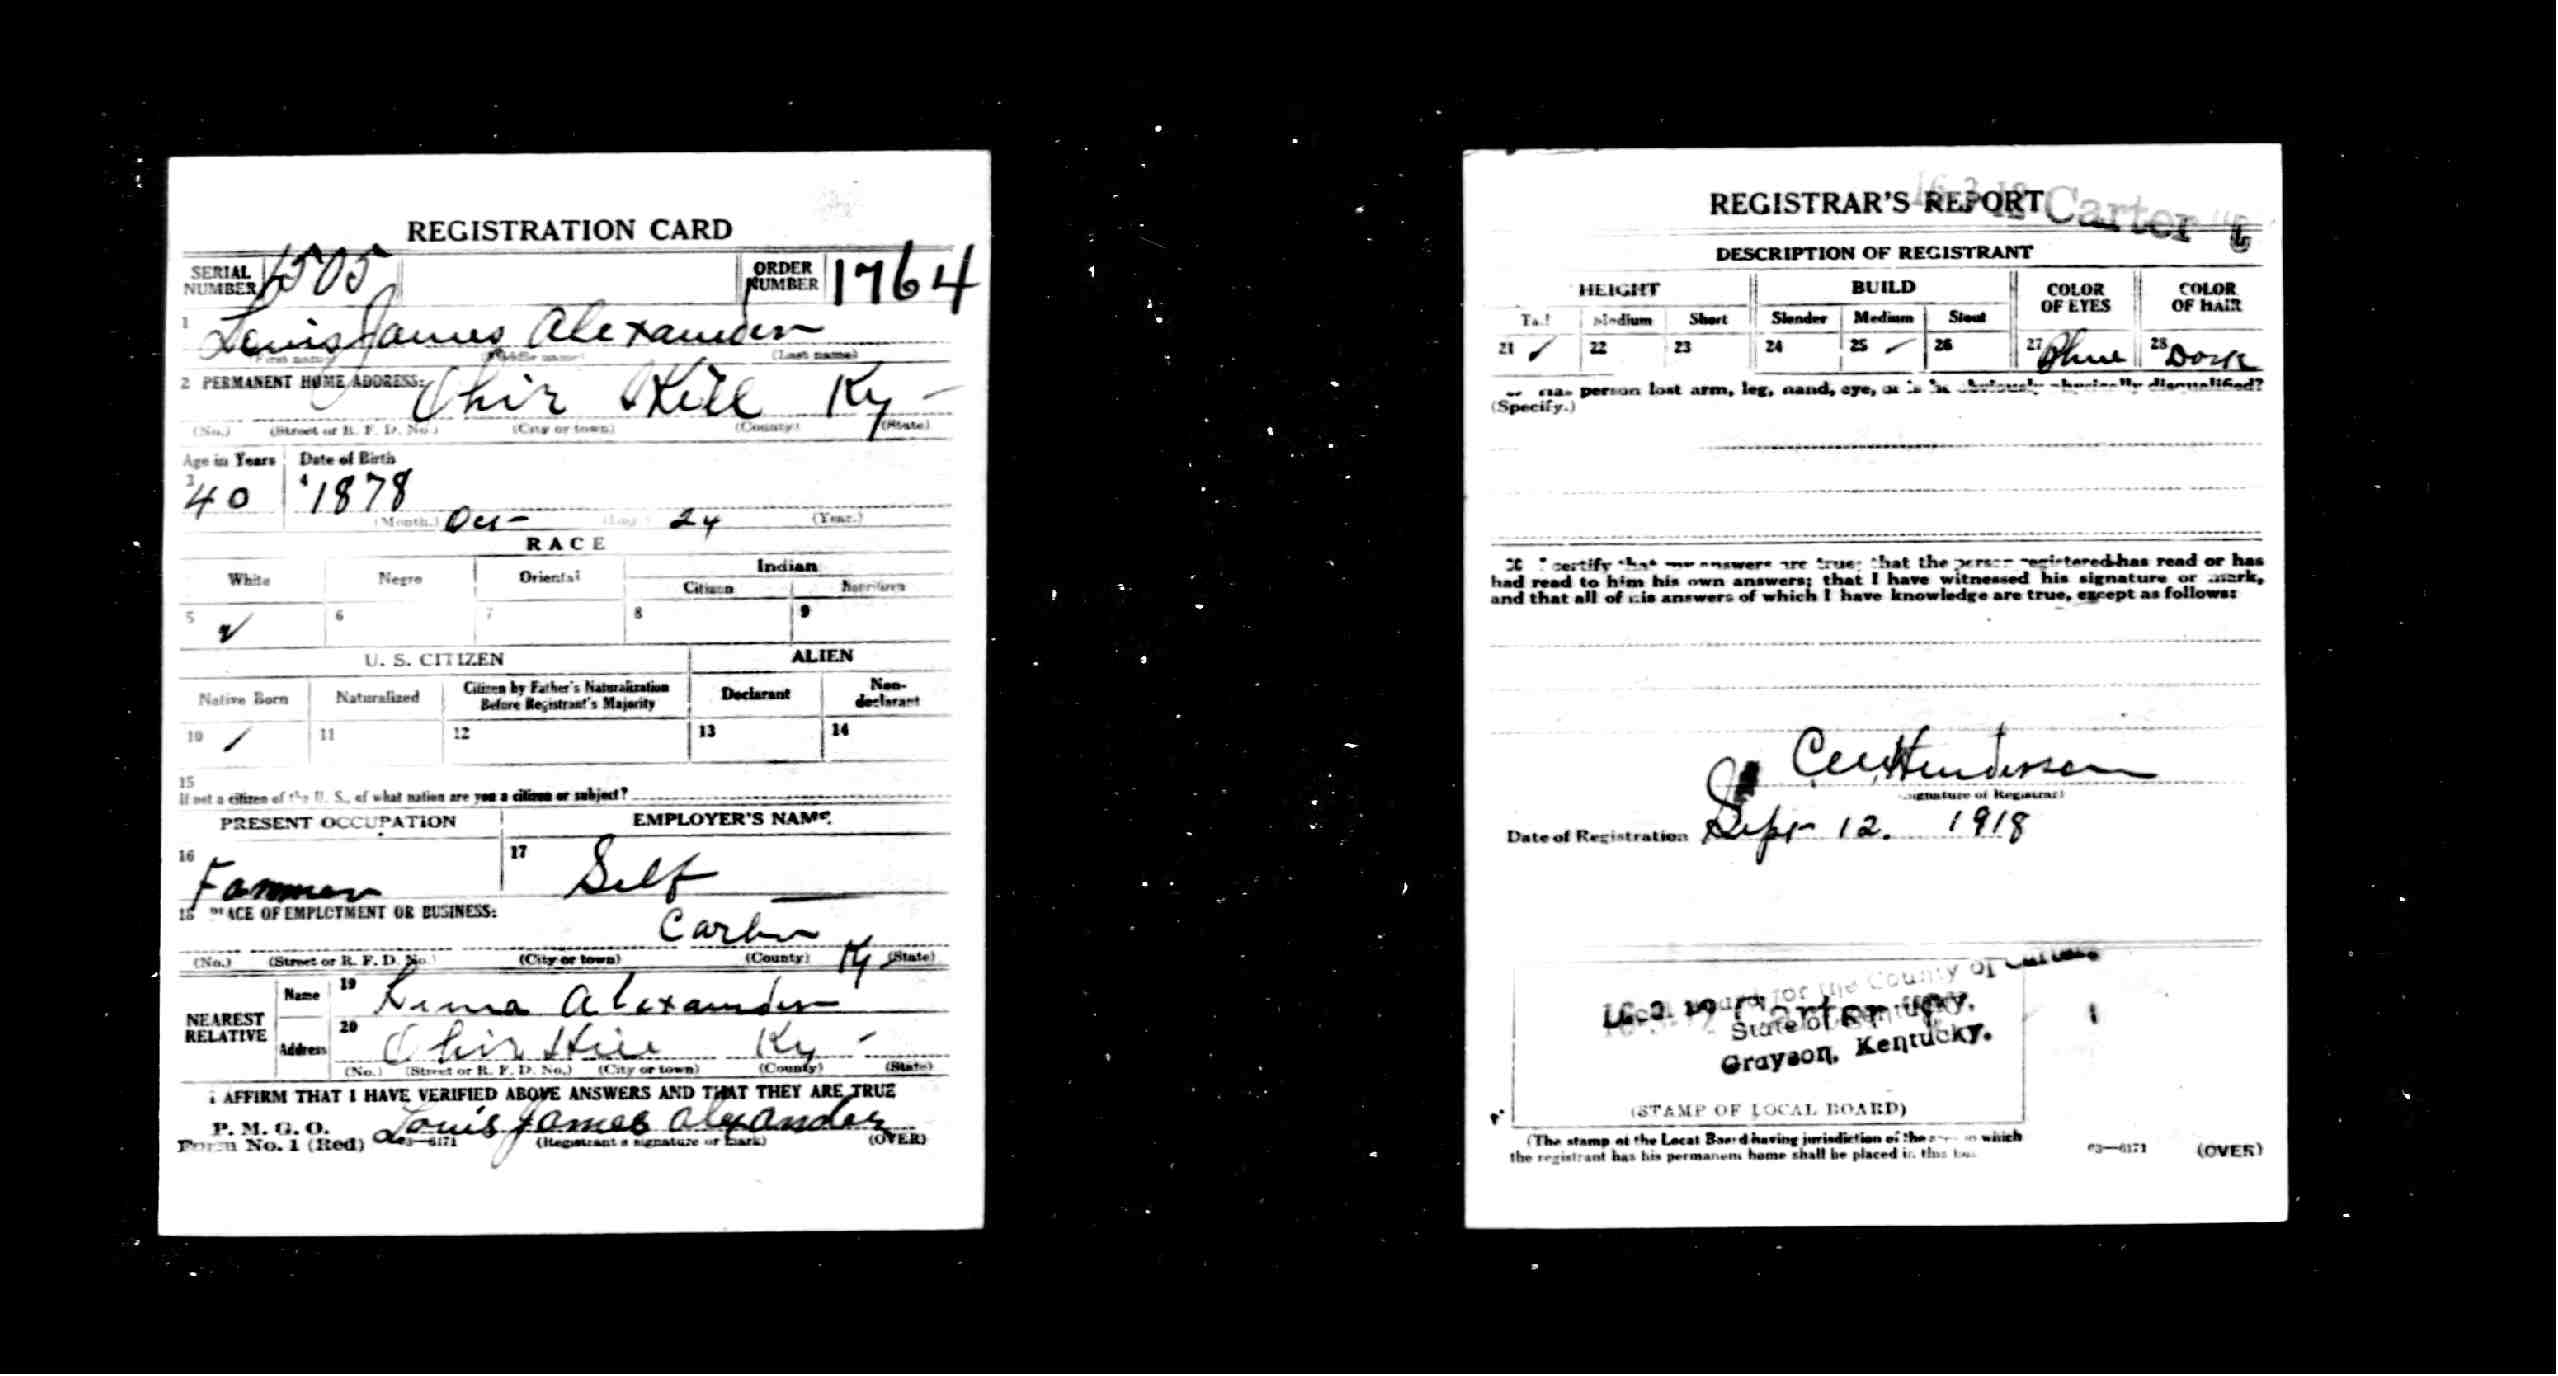 REGISTRATION CARD
SERIAL NUMBER 1505
ORDER NUMBER 1764
1 Louis James Alexander
(First name) (Middle name) (Last name)
2 PERMANENT HOME ADDRESS:
Hill Ky -
(No.) (Street or R. F. D. No.) (City or town) (County) (State)
Age in Years Date of Birth
3 40 4 1878
(Month.) Oct - (Day.) 24 (Year.)
RACE
White Negro Oriental Indian
Citizen Noncitizen
5 ✓ 6 7 8 9
U. S. CITIZEN ALIEN
Native Born Naturalized Citizen by Father's Naturalization Before Registrant's Majority Declarant Non-declarant
10 ✓ 11 12 13 14
15
If not a citizen of the U. S., of what nation are you a citizen or subject?
PRESENT OCCUPATION EMPLOYER'S NAME
16 Farmer 17 Self
18 PLACE OF EMPLOYMENT OR BUSINESS:
Carter Ky
(No.) (Street or R. F. D. No.) (City or town) (County) (State)
NEAREST RELATIVE
Name 19 Alexander
Address 20 Hill Ky -
(No.) (Street or R. F. D. No.) (City or town) (County) (State)
I AFFIRM THAT I HAVE VERIFIED ABOVE ANSWERS AND THAT THEY ARE TRUE
P. M. G. O.
Form No. 1 (Red) 03—6171 Louis James Alexander
(Registrant's signature or mark) (OVER)
REGISTRAR'S REPORT
Carter
DESCRIPTION OF REGISTRANT
HEIGHT BUILD COLOR OF EYES COLOR OF HAIR
Tall Medium Short Slender Medium Stout
21 ✓ 22 23 24 25 ✓ 26 27 Blue 28 Dark
Has person lost arm, leg, hand, eye, or is he obviously physically disqualified?
(Specify.)
I certify that my answers are true; that the person registered has read or has
had read to him his own answers; that I have witnessed his signature or mark,
and that all of his answers of which I have knowledge are true, except as follows:
Henderson
(Signature of Registrar)
Date of Registration Sept 12. 1918
Local Board for the County of Carter
State of Kentucky,
Grayson, Kentucky.
(STAMP OF LOCAL BOARD)
(The stamp of the Local Board having jurisdiction of the area in which
the registrant has his permanent home shall be placed in this box.
03—6171 (OVER)